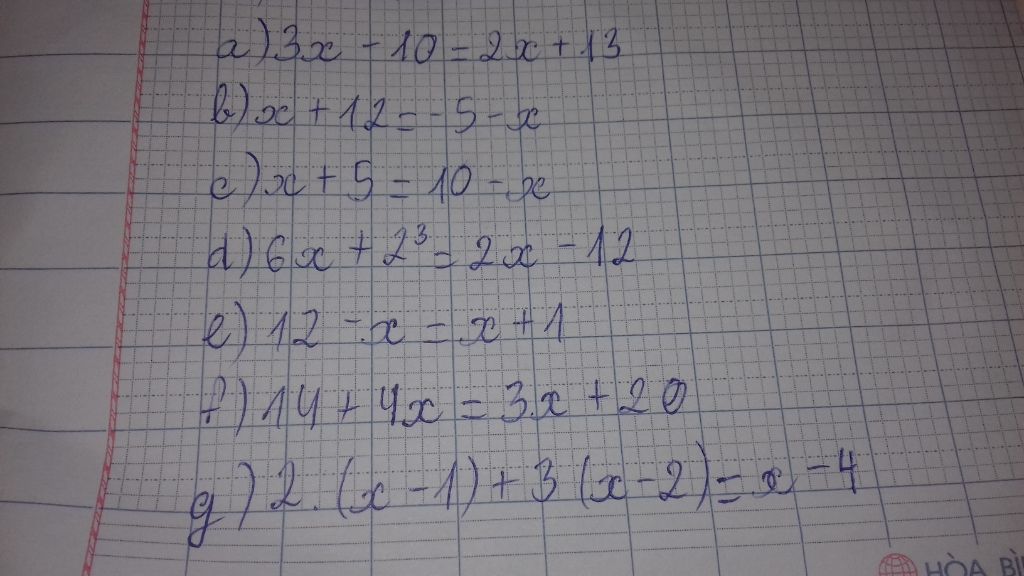 a) 3x - 10 = 2x + 13
b) x + 12 = -5 - x
c) x + 5 = 10 - x
d) 6x + 2³ = 2x - 12
e) 12 - x = x + 1
f) 14 + 4x = 3x + 20
g) 2.(x - 1) + 3(x - 2) = x - 4
HÒA BÌ